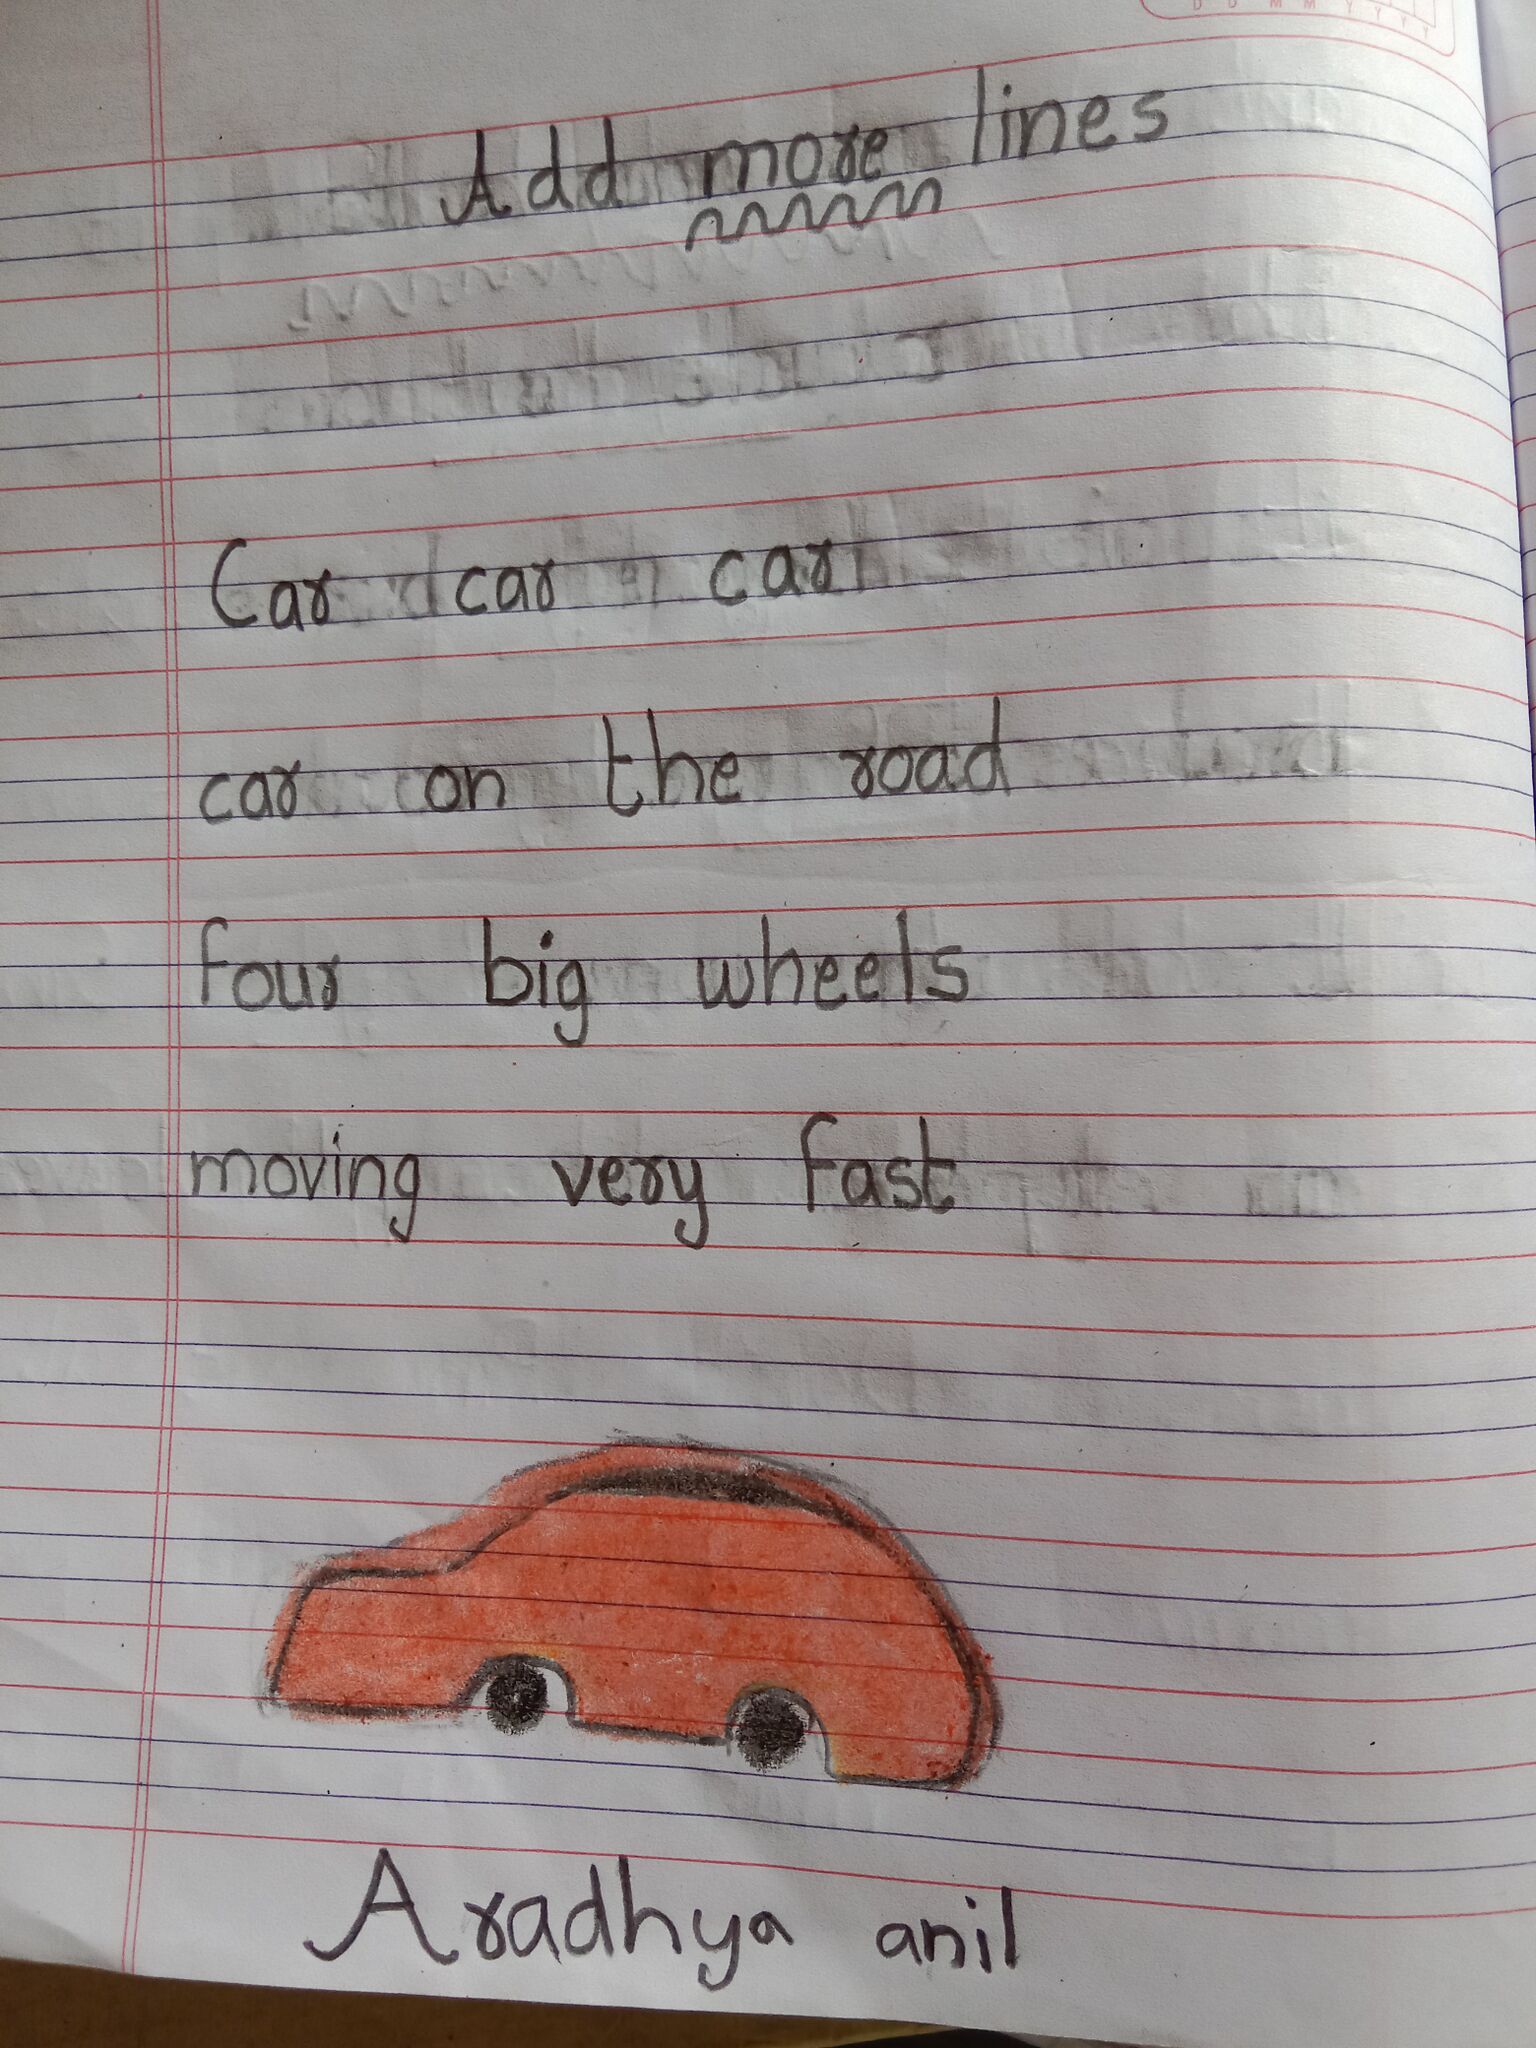 D D M M Y Y Y Y
Add more lines
Car car car
car on the road
four big wheels
moving very fast
Aradhya anil